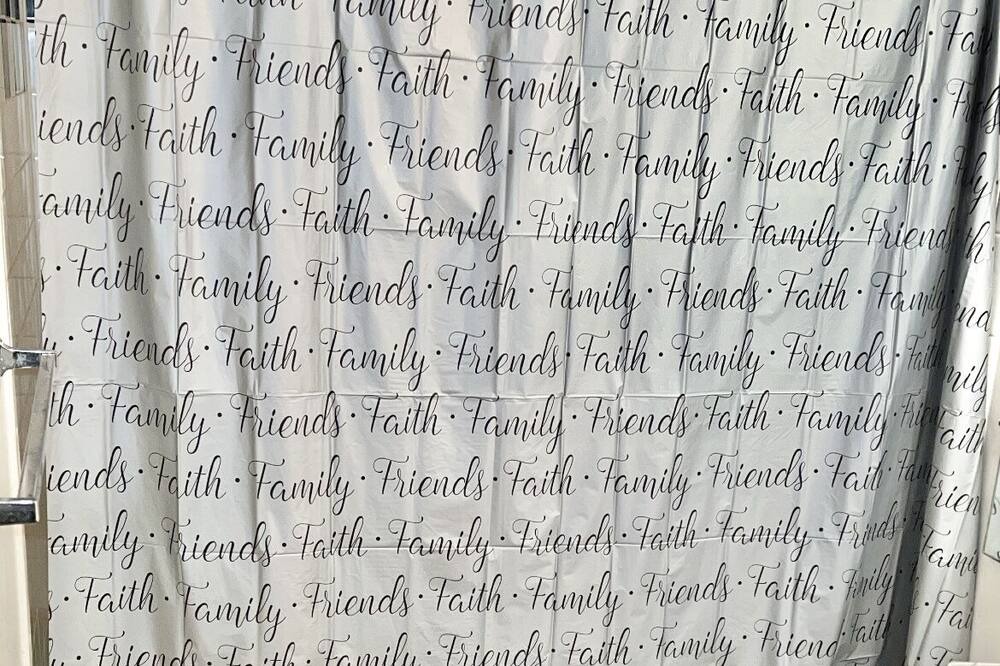 Family · Friends · Faith · Family · Friends
th · Family · Friends · Faith · Family · Friends · Faith · Family ·
iends · Faith · Family · Friends · Faith · Family · Friends · Faith ·
amily · Friends · Faith · Family · Friends · Faith · Family · Friend
Faith · Family · Friends · Faith · Family · Friends · Faith · Family
Friends · Faith · Family · Friends · Faith · Family · Friends · Faith
th · Family · Friends · Faith · Family · Friends · Faith · Family
iends · Faith · Family · Friends · Faith · Family · Friends · Faith
amily · Friends · Faith · Family · Friends · Faith · Family · Friends
Faith · Family · Friends · Faith · Family · Friends · Faith · Family
Friends · Faith · Family · Friends · Faith · Family · Friend